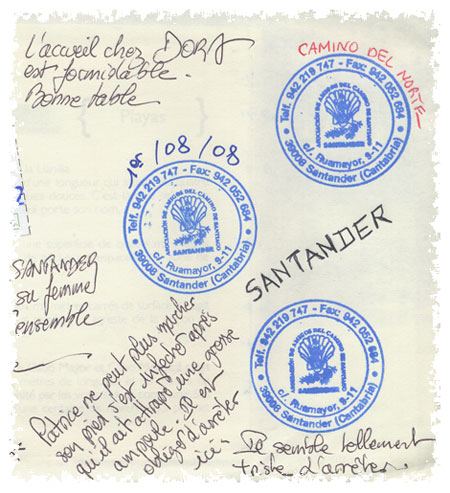 L'accueil chez DORA
est formidable.
Bonne table
CAMINO DEL NORTE
Telf. 942 219 747 - Fax: 942 052 684
ASOCIACIÓN DE AMIGOS DEL CAMINO DE SANTIAGO
SANTANDER
c/. Ruamayor, 9-11
39008 Santander (Cantabria)
{ Playas }
1er/08/08
Telf. 942 219 747 - Fax: 942 052 684
ASOCIACIÓN DE AMIGOS DEL CAMINO DE SANTIAGO
SANTANDER
c/. Ruamayor, 9-11
39008 Santander (Cantabria)
SANTANDER
SANTANDER
sa femme
ensemble
Telf. 942 219 747 - Fax: 942 052 684
ASOCIACIÓN DE AMIGOS DEL CAMINO DE SANTIAGO
SANTANDER
c/. Ruamayor, 9-11
39008 Santander (Cantabria)
Patrice ne peut plus marcher
son pied s'est infecter après
qu'il ait attrapé une grosse
ampoule. Il est
obligé d'arrêter
ici -
Il semble tellement
triste d'arrêter.